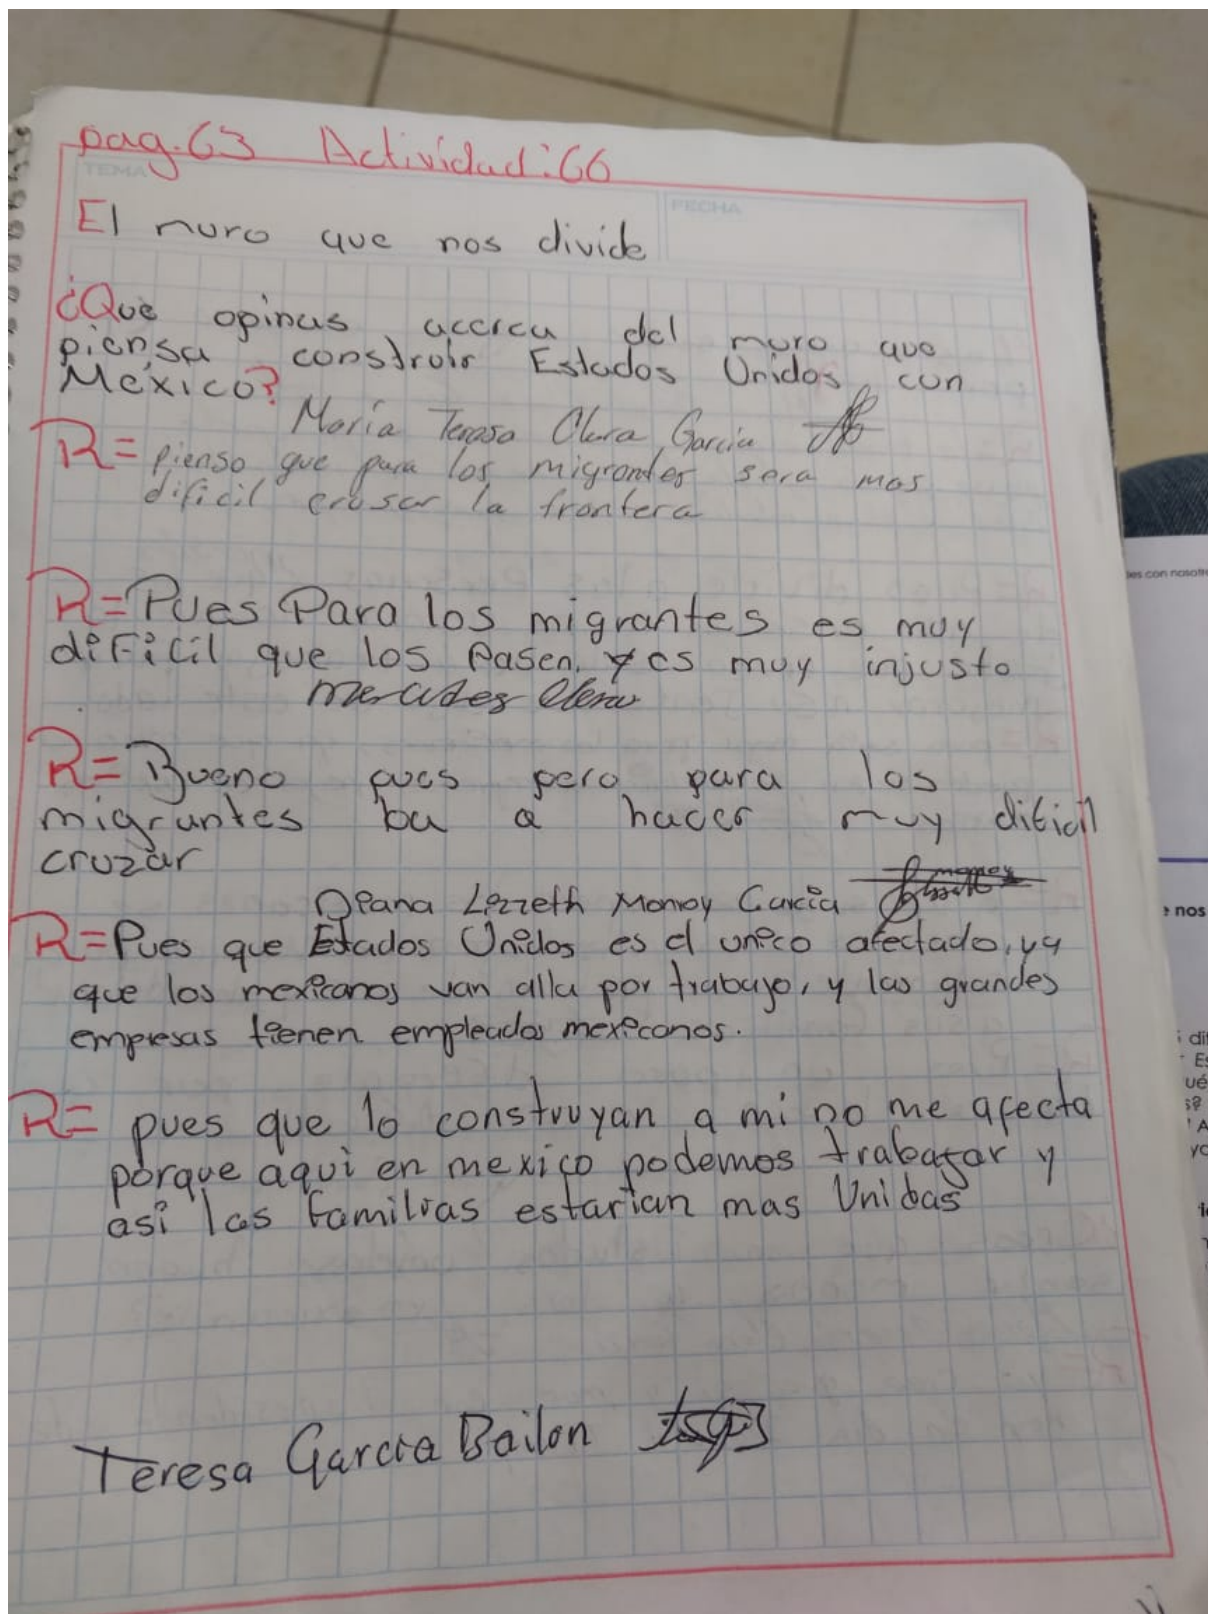 pag.63 Actividad:66
TEMA
FECHA
El muro que nos divide
¿Que opinas acerca del muro que
piensa construir Estados Unidos con
México?
María Teresa Clara Garcia
R= pienso que para los migrantes sera mas
dificil crusar la frontera
R=Pues Para los migrantes es muy
dificil que los Pasen. y es muy injusto
R=Bueno pues pero para los
migrantes ba a hacer muy dificil
cruzar
Diana Lizzeth Monroy Garcia
R=Pues que Estados Unidos es el unico afectado, ya
que los mexicanos van alla por trabajo, y las grandes
empresas tienen empleados mexicanos.
R= pues que lo construyan a mi no me afecta
porque aqui en mexico podemos trabajar y
asi las familias estarian mas Unidas
Teresa Garcia Bailon